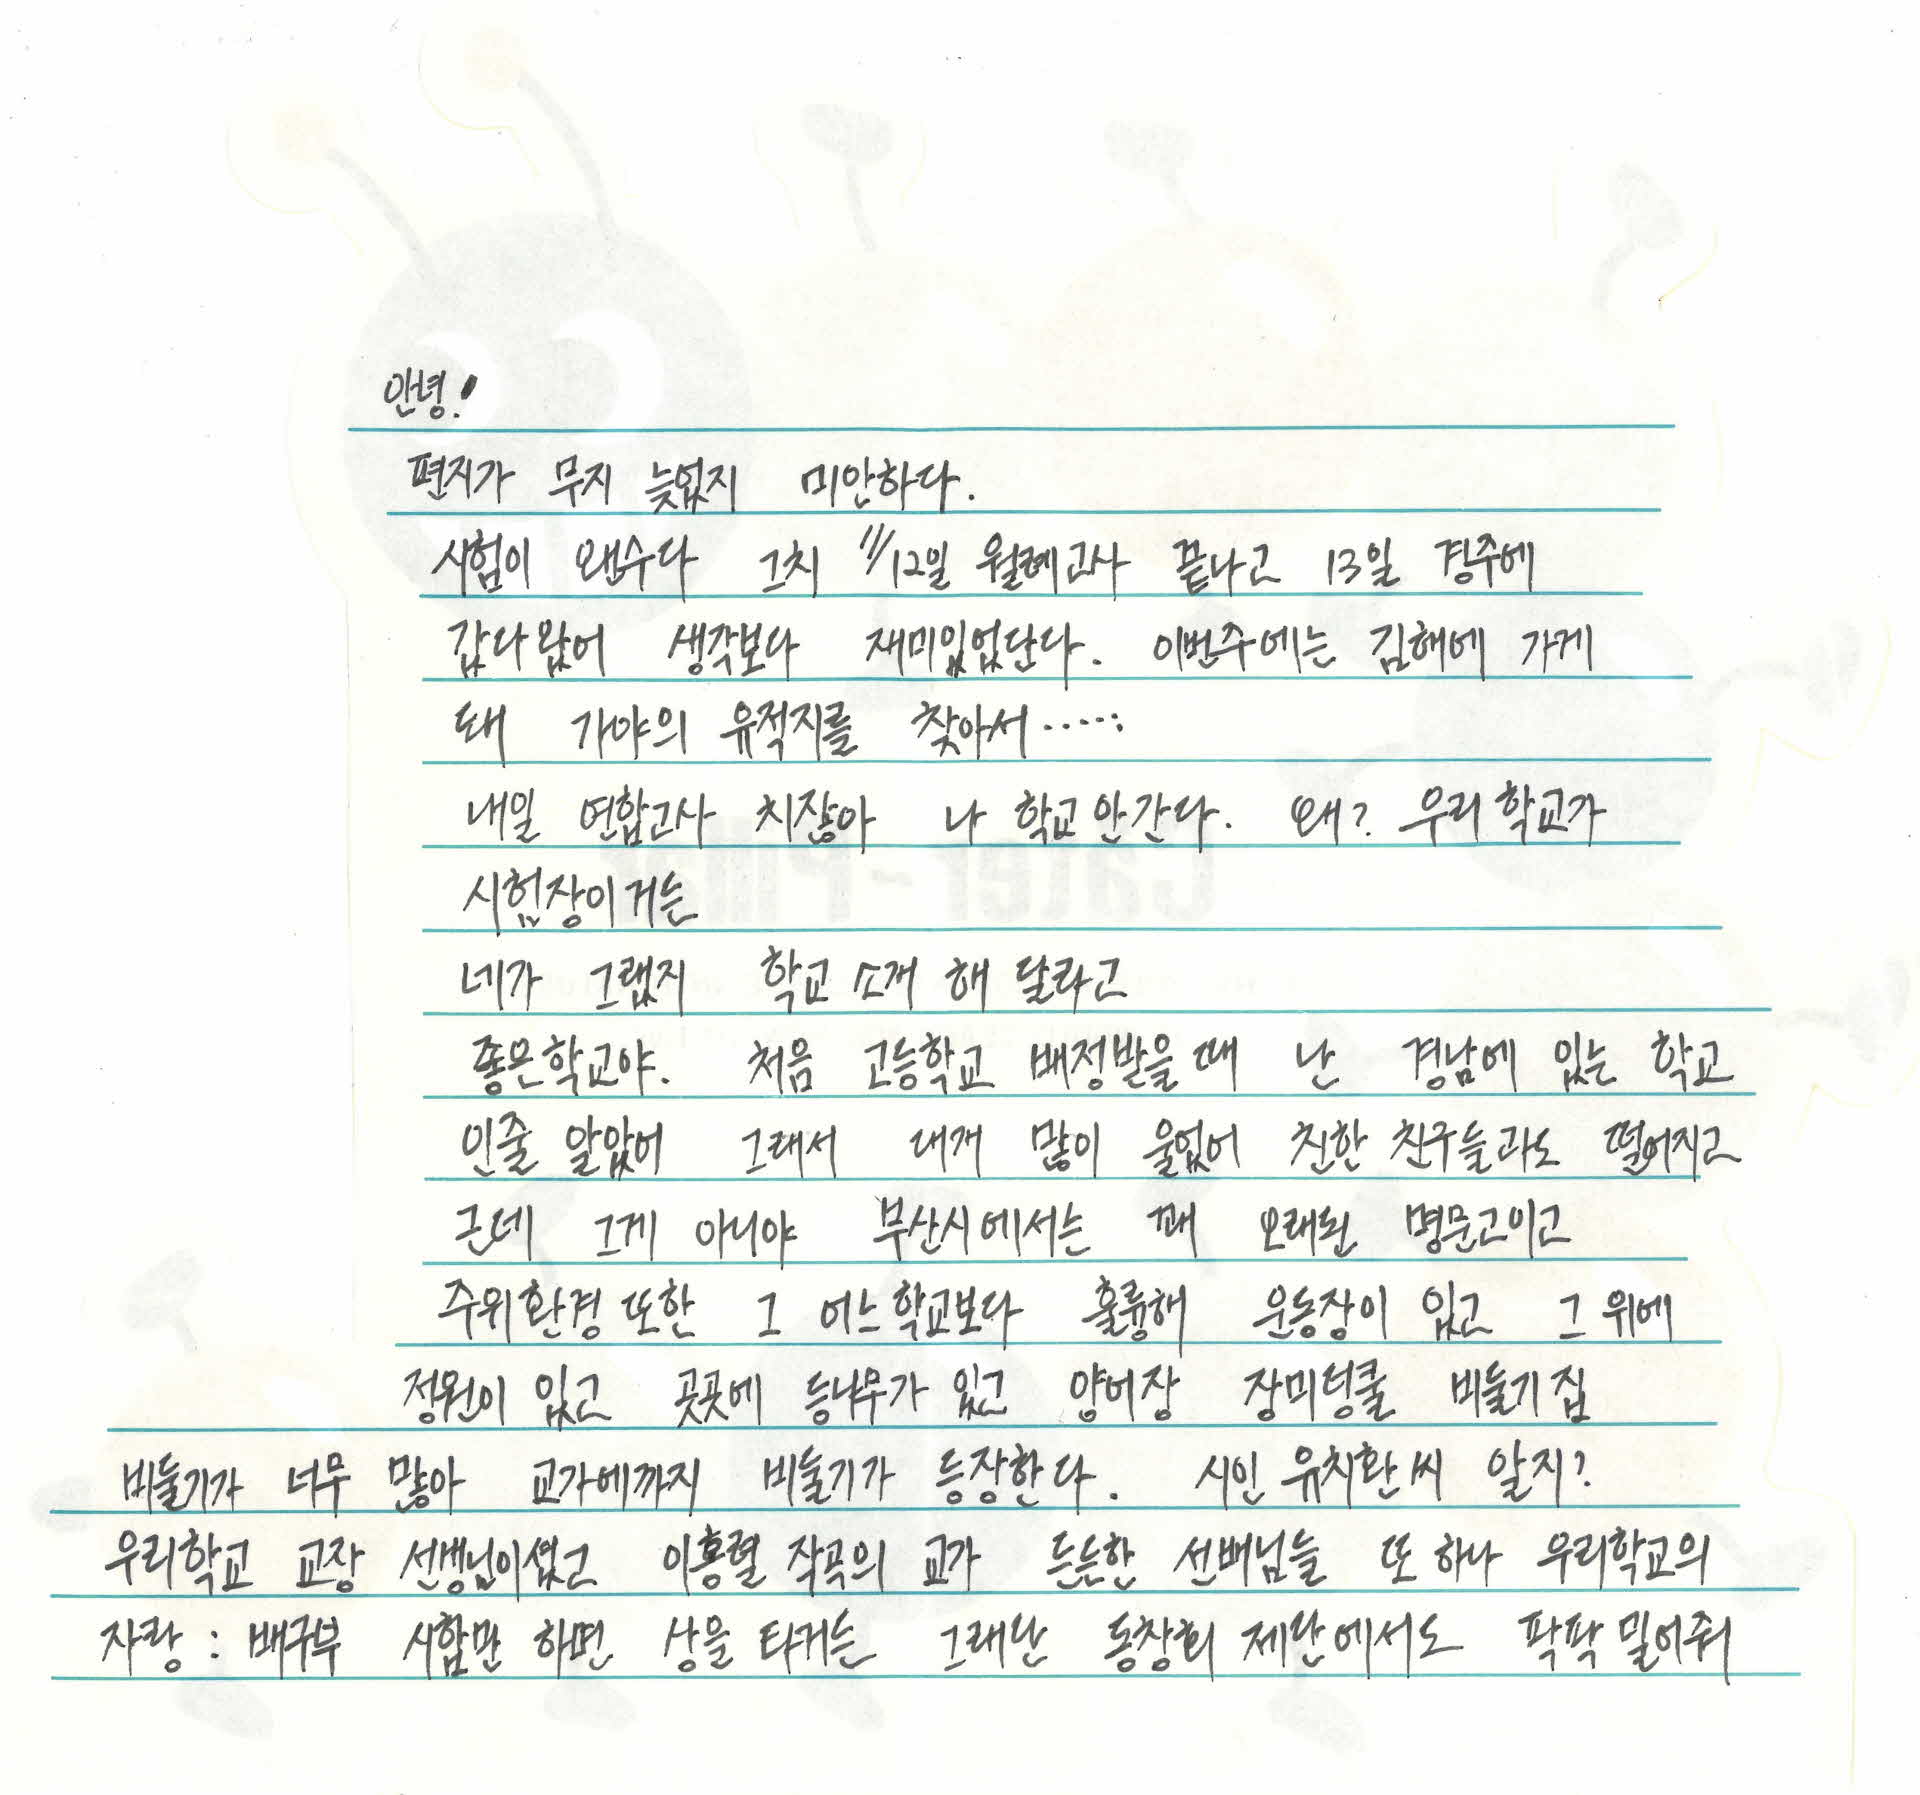 안녕!
편지가 무지 늦었지 미안하다.
시험이 왠수다 그치 11/12일 월례고사 끝나고 13일 경주에
갔다 왔어 생각보다 재미있었단다. 이번주에는 김해에 가게
돼 가야의 유적지를 찾아서.....
내일 연합고사 치잖아 나 학교 안간다. 왜? 우리 학교가
시험장이거든
네가 그랬지 학교 소개 해 달라고
좋은학교야. 처음 고등학교 배정받을 때 난 경남에 있는 학교
인줄 알았어 그래서 대개 많이 울었어 친한 친구들과도 떨어지고
근데 그게 아니야 부산시에서는 꽤 오래된 명문고이고
주위환경 또한 그 어느 학교보다 훌륭해 운동장이 있고 그 위에
정원이 있고 곳곳에 등나무가 있고 양어장 장미덩쿨 비둘기집
비둘기가 너무 많아 교가에까지 비둘기가 등장한다. 시인 유치환씨 알지?
우리학교 교장 선생님이셨고 이흥렬 작곡의 교가 든든한 선배님들 또 하나 우리학교의
자랑 : 배구부 시합만 하면 상을 타거든 그래난 동창회 재단에서도 팍팍 밀어줘
Cater-Pillar